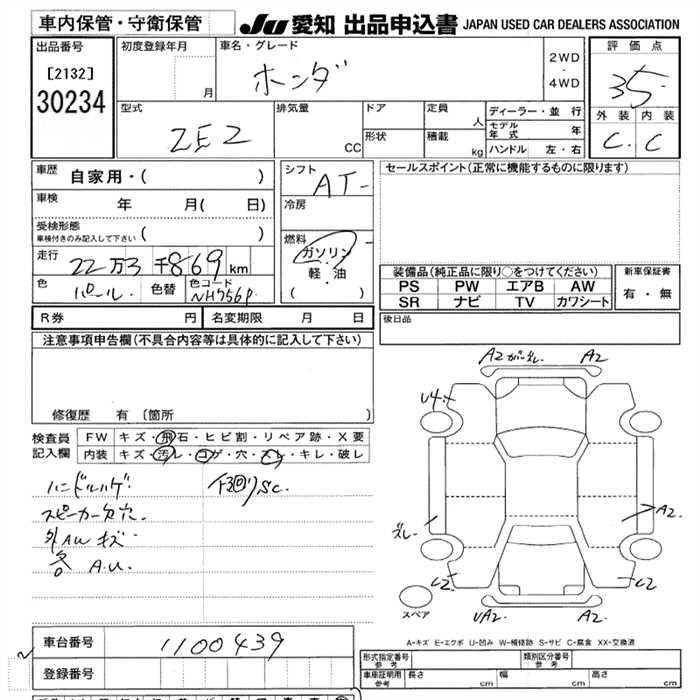 車内保管・守衛保管
JU 愛知 出品申込書 JAPAN USED CAR DEALERS ASSOCIATION
出品番号
[2132]
30234
初度登録年月
月
車名・グレード
ホンダ
2WD
・
4WD
評価点
3.5
外装 内装
C C
型式
ZE2
排気量
CC
ドア
形状
定員
人
積載
kg
ディーラー・並行
モデル年式 年
ハンドル 左・右
車歴
自家用・( )
車検
年 月( 日)
受検形態
車検付きのみ記入して下さい ( )
走行
22万3千869km
色
パール
色替
色コード
NH756P
シフト
AT
冷房
燃料
ガソリン
軽・油
( )
セールスポイント(正常に機能するものに限ります)
装備品(純正品に限り○をつけてください)
PS PW エアB AW
SR ナビ TV カワシート
新車保証書
有・無
後日品
R券 円
名変期限 月 日
注意事項申告欄(不具合内容等は具体的に記入して下さい)
修復歴 有〔箇所 〕
検査員
記入欄
FW キズ・飛石・ヒビ割・リペア跡・X要
内装 キズ・汚レ・コゲ・穴・スレ・キレ・破レ
ハンドルハゲ
下回りSC.
スピーカー欠穴.
外AWキズ
各A.U.
A2ガバズレ
A2
U4
A2
ズレ
C2
C2
UA2
A2
スペア
A-キズ E-エクボ U-凹み W-補修跡 S-サビ C-腐食 XX-交換済
車台番号
1100439
登録番号
形式指定番号
参考
類別区分番号
参考
車庫証明用
参考
長さ cm
幅 cm
高さ cm